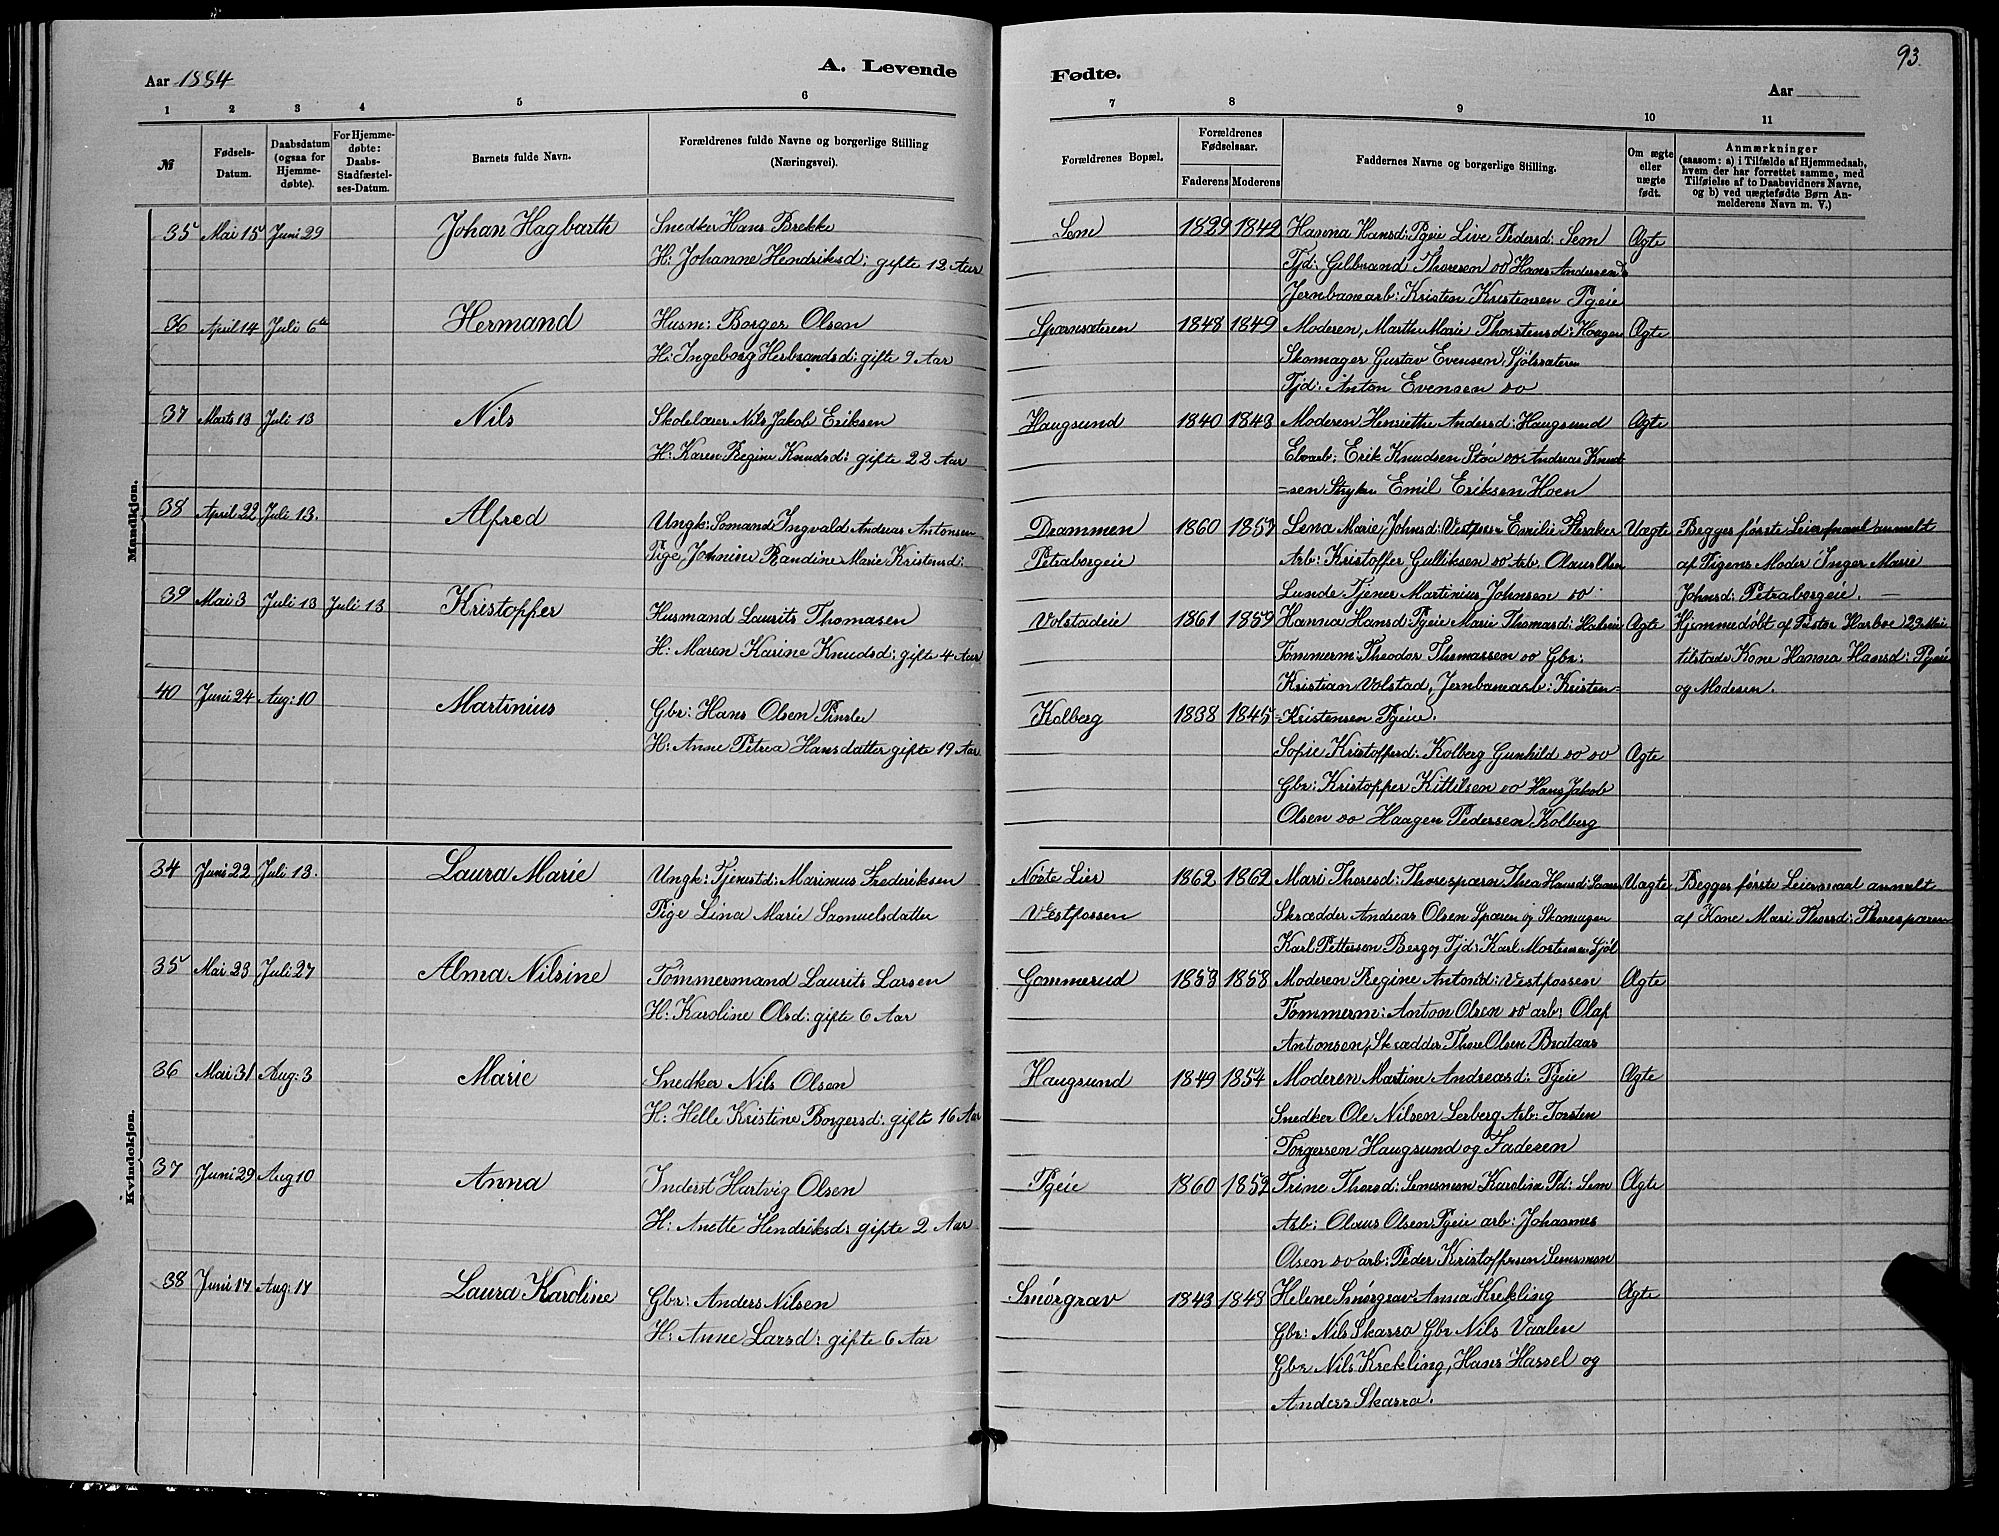 Aar 1884
A. Levende
1 2 3 4 5 6
№
Fødsels-Datum.
Daabsdatum (ogsaa for Hjemme-døbte).
For Hjemme-døbte: Daabs-Stadfæstel-ses-Datum.
Barnets fulde Navn.
Forældrenes fulde Navne og borgerlige Stilling (Næringsvei).
Mandkjøn.
35 Mai 15 Juni 29 Johan Hagbarth Snedker Hans Brekke
H: Johanne Hendriksd: gifte 12 Aar
36 April 14 Juli 6te Hermand Husm: Borger Olsen
H: Ingeborg Herbrandsd: gifte 9 Aar
37 Marts 13 Juli 13 Nils Skolelærer Nils Jakob Eriksen
H: Karen Regine Knudsd: gifte 22 Aar
38 April 22 Juli 13. Alfred Ungk: Sømand Ingvald Andreas Antonsen
Pige Johnine Randine Marie Kristensd:
39 Mai 3 Juli 13 Juli 13 Kristoffer Husmand Laurits Thomasen
H: Maren Karine Knudsd: gifte 4 Aar
40 Juni 24 Aug: 10 Martinius Gbr: Hans Olsen
H: Anne Petrea Hansdatter gifte 19 Aar
Kvindekjøn.
34 Juni 22 Juli 13. Laura Marie Ungk: Tjenestd: Marinius Frederiksen
Pige Lina Marie Samuelsdatter
35 Mai 23 Juli 27 Alma Nilsine Tømmermand Laurits Larsen
H: Karoline Olsd: gifte 6 Aar
36 Mai 31 Aug: 3 Marie Snedker Nils Olsen
H: Helle Kristine Borgersd: gifte 16 Aar
37 Juni 29 Aug 10 Anna Inderst Hartvig Olsen
H: Anette Hendriksd: gifte 2 Aar
38 Juni 17 Aug: 17 Laura Karoline Gbr: Anders Nilsen
H: Anne Larsd: gifte 6 Aar
93.
Fødte.
Aar
7 8 9 10 11
Forældrenes Bopæl.
Forældrenes Fødselsaar.
Faderens Moderens
Faddernes Navne og borgerlige Stilling.
Om ægte eller uægte født.
Anmærkninger (saasom: a) i Tilfælde af Hjemmedaab, hvem der har forrettet samme, med Tilføielse af to Daabsvidners Navne, og b) ved uægtefødte Børn Anmelderens Navn m. V.)
Sem 1829 1842 Hanna Hansd: Pgeie Live Pedersd: Sem Ægte
Tjd: Gulbrand Thoresen do Hans Andersen do
Jernbanearb: Kristen Kristensen Pgeie
Sparnsæteren 1848 1849 Moderen, Marthe Marie Thorstensd: Haugen Ægte
Skomager Gustav Evensen Sjølsæteren
Tjd: Anton Evensen do
Haugsund 1840 1843 Moderen Henriette Andersd: Haugsund Ægte
Elvarb: Erik Knudsen Støa do Andreas Knud-
=sen Stryken Emil Eriksen Hoen
Drammen 1860 1853 Lena Marie Johnsd: Vestfossen Emilie Uægte Begges første Leiermaal anmeldt
Petraborgeie Arb: Kristoffer Gulliksen do Arb. Olaus Olsen af Pigens Moder Inger Marie
Lunde Tjener Martinius Johnsen do Johnsd: Petraborgeie.
Volstadeie 1861 1859 Hanna Hansd: Pgeie Marie Thomasd: Ægte Hjemmedøbt af Pastor Harboe 29 Mai
Tømmerm: Theodor Thomassen do Gbr: tilstede Kone Hanna Hansd: Pgeie
Kristian Volstad, Jernbanearb: Kristen= og Moderen.
Kolberg 1838 1845 =Kristensen Pgeie.
Sofie Kristoffersd: Kolberg Gunhild do do Ægte
Gbr: Kristoffer Kittilsen do Hans Jakob
Olsen do Haagen Pedersen Kolberg
Nøste Lier 1862 1862 Mari Thoresd: Thorespæren Thea Hansd: Uægte Begges første Leiermaal anmeldt
Vestfossen Skrædder Andreas Olsen Spæren og Skomager af Kone Mari Thoresd: Thorespæren
Karl Pettersen Berg og Tjd: Karl Mortensen Sjøl
Gommerud 1853 1858 Moderen Regine Antonsd: Vestfossen Ægte
Tømmerm: Anton Olsen do arb: Olaf
Antonsen, Skrædder Thore Olsen Brataas
Haugsund 1849 1854 Moderen Martine Andreasd: Pgeie Ægte
Snedker Ole Nilsen Lerberg Arb: Torsten
Torgersen Haugsund og Faderen
Pgeie 1860 1859 Trine Thorsd: Semsmoen Karoline Pd: Sem Ægte
Arb: Olaus Olsen Pgeie arb: Johannes
Olsen do arb: Peder Kristoffersen Semsmoen
Smørgrav 1843 1843 Helene Smørgrav Anna Krekling Ægte
Gbr: Nils Skarra Gbr Nils Vaalen
Gbr Nils Krekling, Hans Hassel og
Anders Skarra.